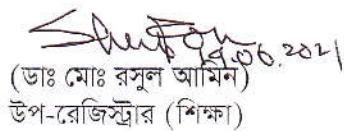 19.06.2021
(ডাঃ মোঃ রসুল আমিন)
উপ-রেজিস্ট্রার (শিক্ষা)